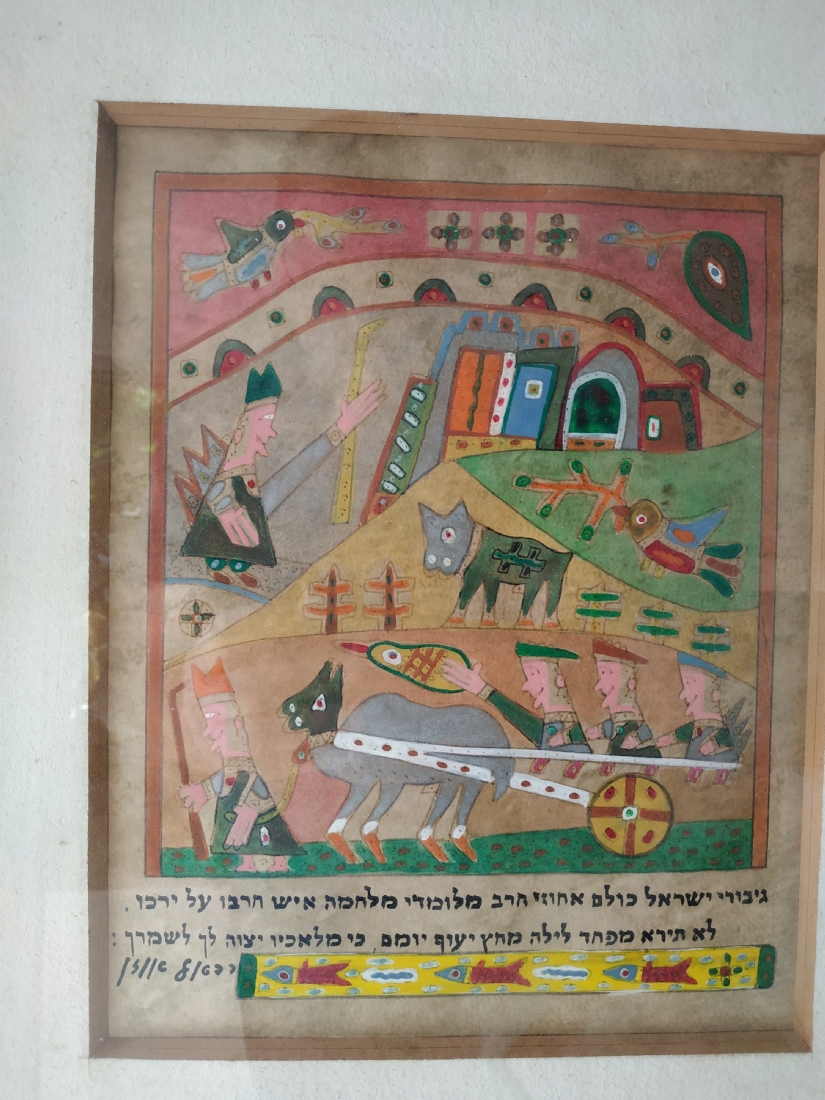 גיבורי ישראל כולם אחוזי חרב מלומדי מלחמה איש חרבו על ירכו .
לא תירא מפחד לילה מחץ יעוף יומם, כי מלאכיו יצוה לך לשמרך :